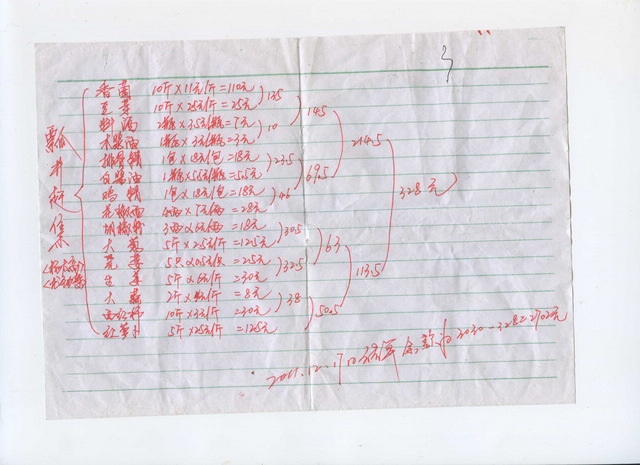 香菌 10斤×11元/斤=110元
10斤×2.5元/斤=25元 135
料酒 2瓶×3.5元/瓶=7元 145
酱油 1瓶×3元/瓶=3元 10
排骨精 1包×18元/包=18元 214.5
白酱油 1瓶×5.5元/瓶=5.5元 23.5
鸡精 1包×18元/包=18元 69.5
花椒面 4两×7元/两=28元 46
328元
胡椒粉 3两×6元/两=18元
大葱 5斤×2.5元/斤=12.5元 30.5
芫荽 5只×0.5元/只=2.5元 63
生姜 5斤×6元/斤=30元 32.5
113.5
大蒜 2斤×4元/斤=8元
西红柿 10斤×3元/斤=30元 38
红萝卜 5斤×2.5元/斤=12.5元 50.5
2011.12.17日 余款为3030-328=2702元